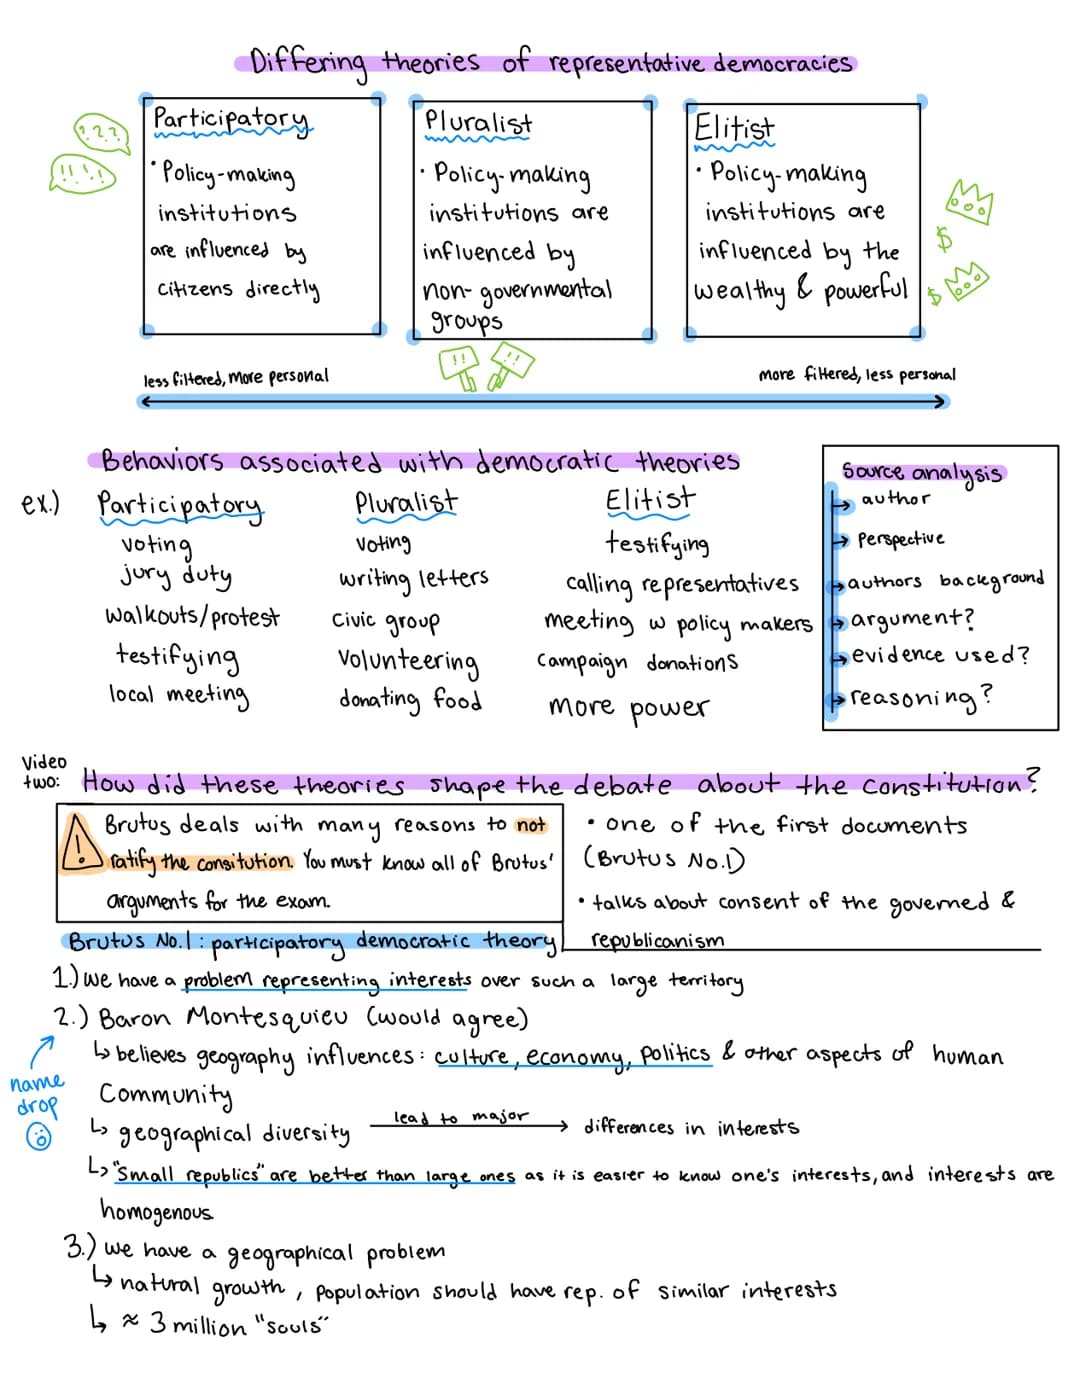 Differing theories of representative democracies
Participatory
• Policy-making
institutions
are influenced by
citizens directly
???
!!!!
Pluralist
• Policy-making
institutions are
influenced by
non-governmental
groups
!!
!!
Elitist
• Policy-making
institutions are
influenced by the
wealthy & powerful
$
$
less filtered, more personal
more filtered, less personal
Behaviors associated with democratic theories
ex.) Participatory
voting
jury duty
walkouts/protest
testifying
local meeting
Pluralist
voting
writing letters
civic group
volunteering
donating food
Elitist
testifying
calling representatives
meeting w policy makers
campaign donations
more power
Source analysis
→ author
→ Perspective
→ authors background
→ argument?
→ evidence used?
→ reasoning?
Video
two: How did these theories shape the debate about the constitution?
! Brutus deals with many reasons to not
ratify the consitution. You must know all of Brutus'
arguments for the exam.
• one of the first documents
(Brutus No.1)
• talks about consent of the governed &
republicanism
Brutus No.1: participatory democratic theory
1.) we have a problem representing interests over such a large territory
2.) Baron Montesquieu (would agree)
name
drop
↳ believes geography influences: culture, economy, politics & other aspects of human
community
↳ geographical diversity lead to major → differences in interests
↳ "small republics" are better than large ones as it is easier to know one's interests, and interests are
homogenous.
3.) we have a geographical problem
↳ natural growth, population should have rep. of similar interests
↳ ≈ 3 million "souls"